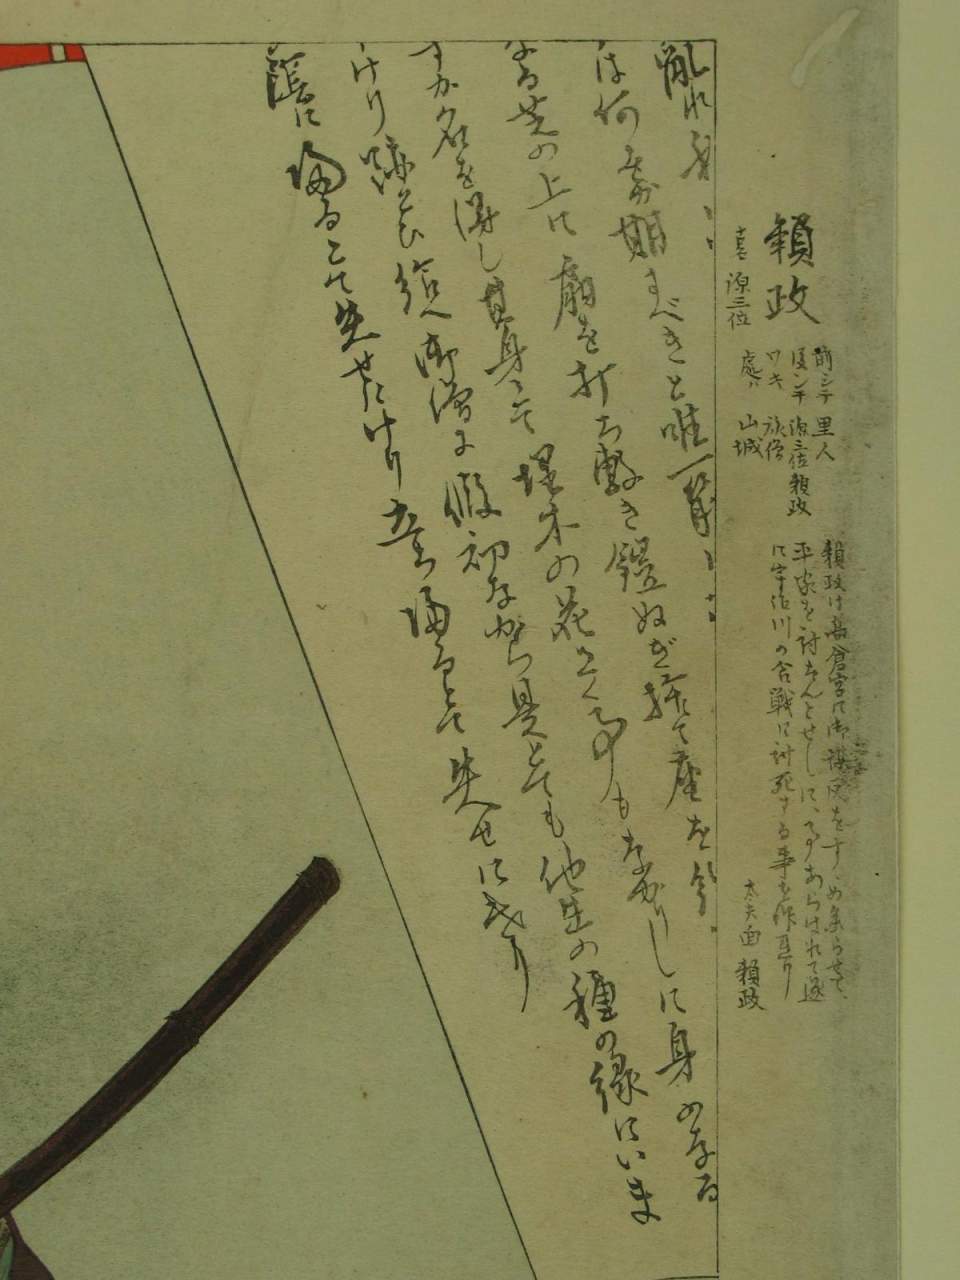 頼政
喜 源三位
前シテ 里人
後シテ 源三位頼政
ワキ 旅僧
處ハ 山城
頼政は高倉宮に御謀反をすゝめ参らせて、
平家を討たんとせしに、事あらはれて遂
に宇治川の合戦に討死する事を作
太夫面 頼政
乱れ
は何 期すべきと唯一筋
芝の上に扇を打ち敷き鎧ぬぎ捨て座を
すが名を得し其身とて埋木の花さく事もなかりしに身のなる
けり跡とひ給へ御僧よ仮初ながら是とても他生の種の縁にいま
蔭に帰るとて失せにけり立ち帰るとて失せにけり